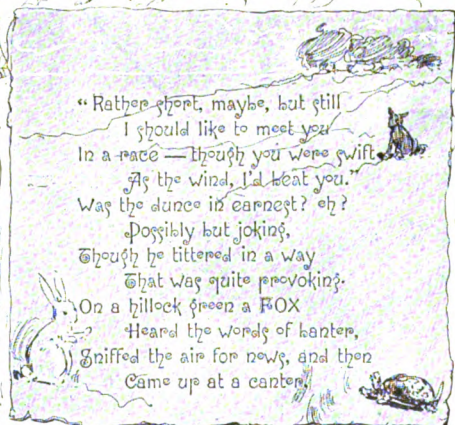 “Rather short, maybe, but still
I should like to meet you
In a race — though you were swift
As the wind, I'd beat you.”
Was the dunce in earnest? eh?
Possibly but joking,
Though he tittered in a way
That was quite provoking.
On a hillock green a FOX
Heard the words of banter,
Sniffed the air for news, and then
Came up at a canter.